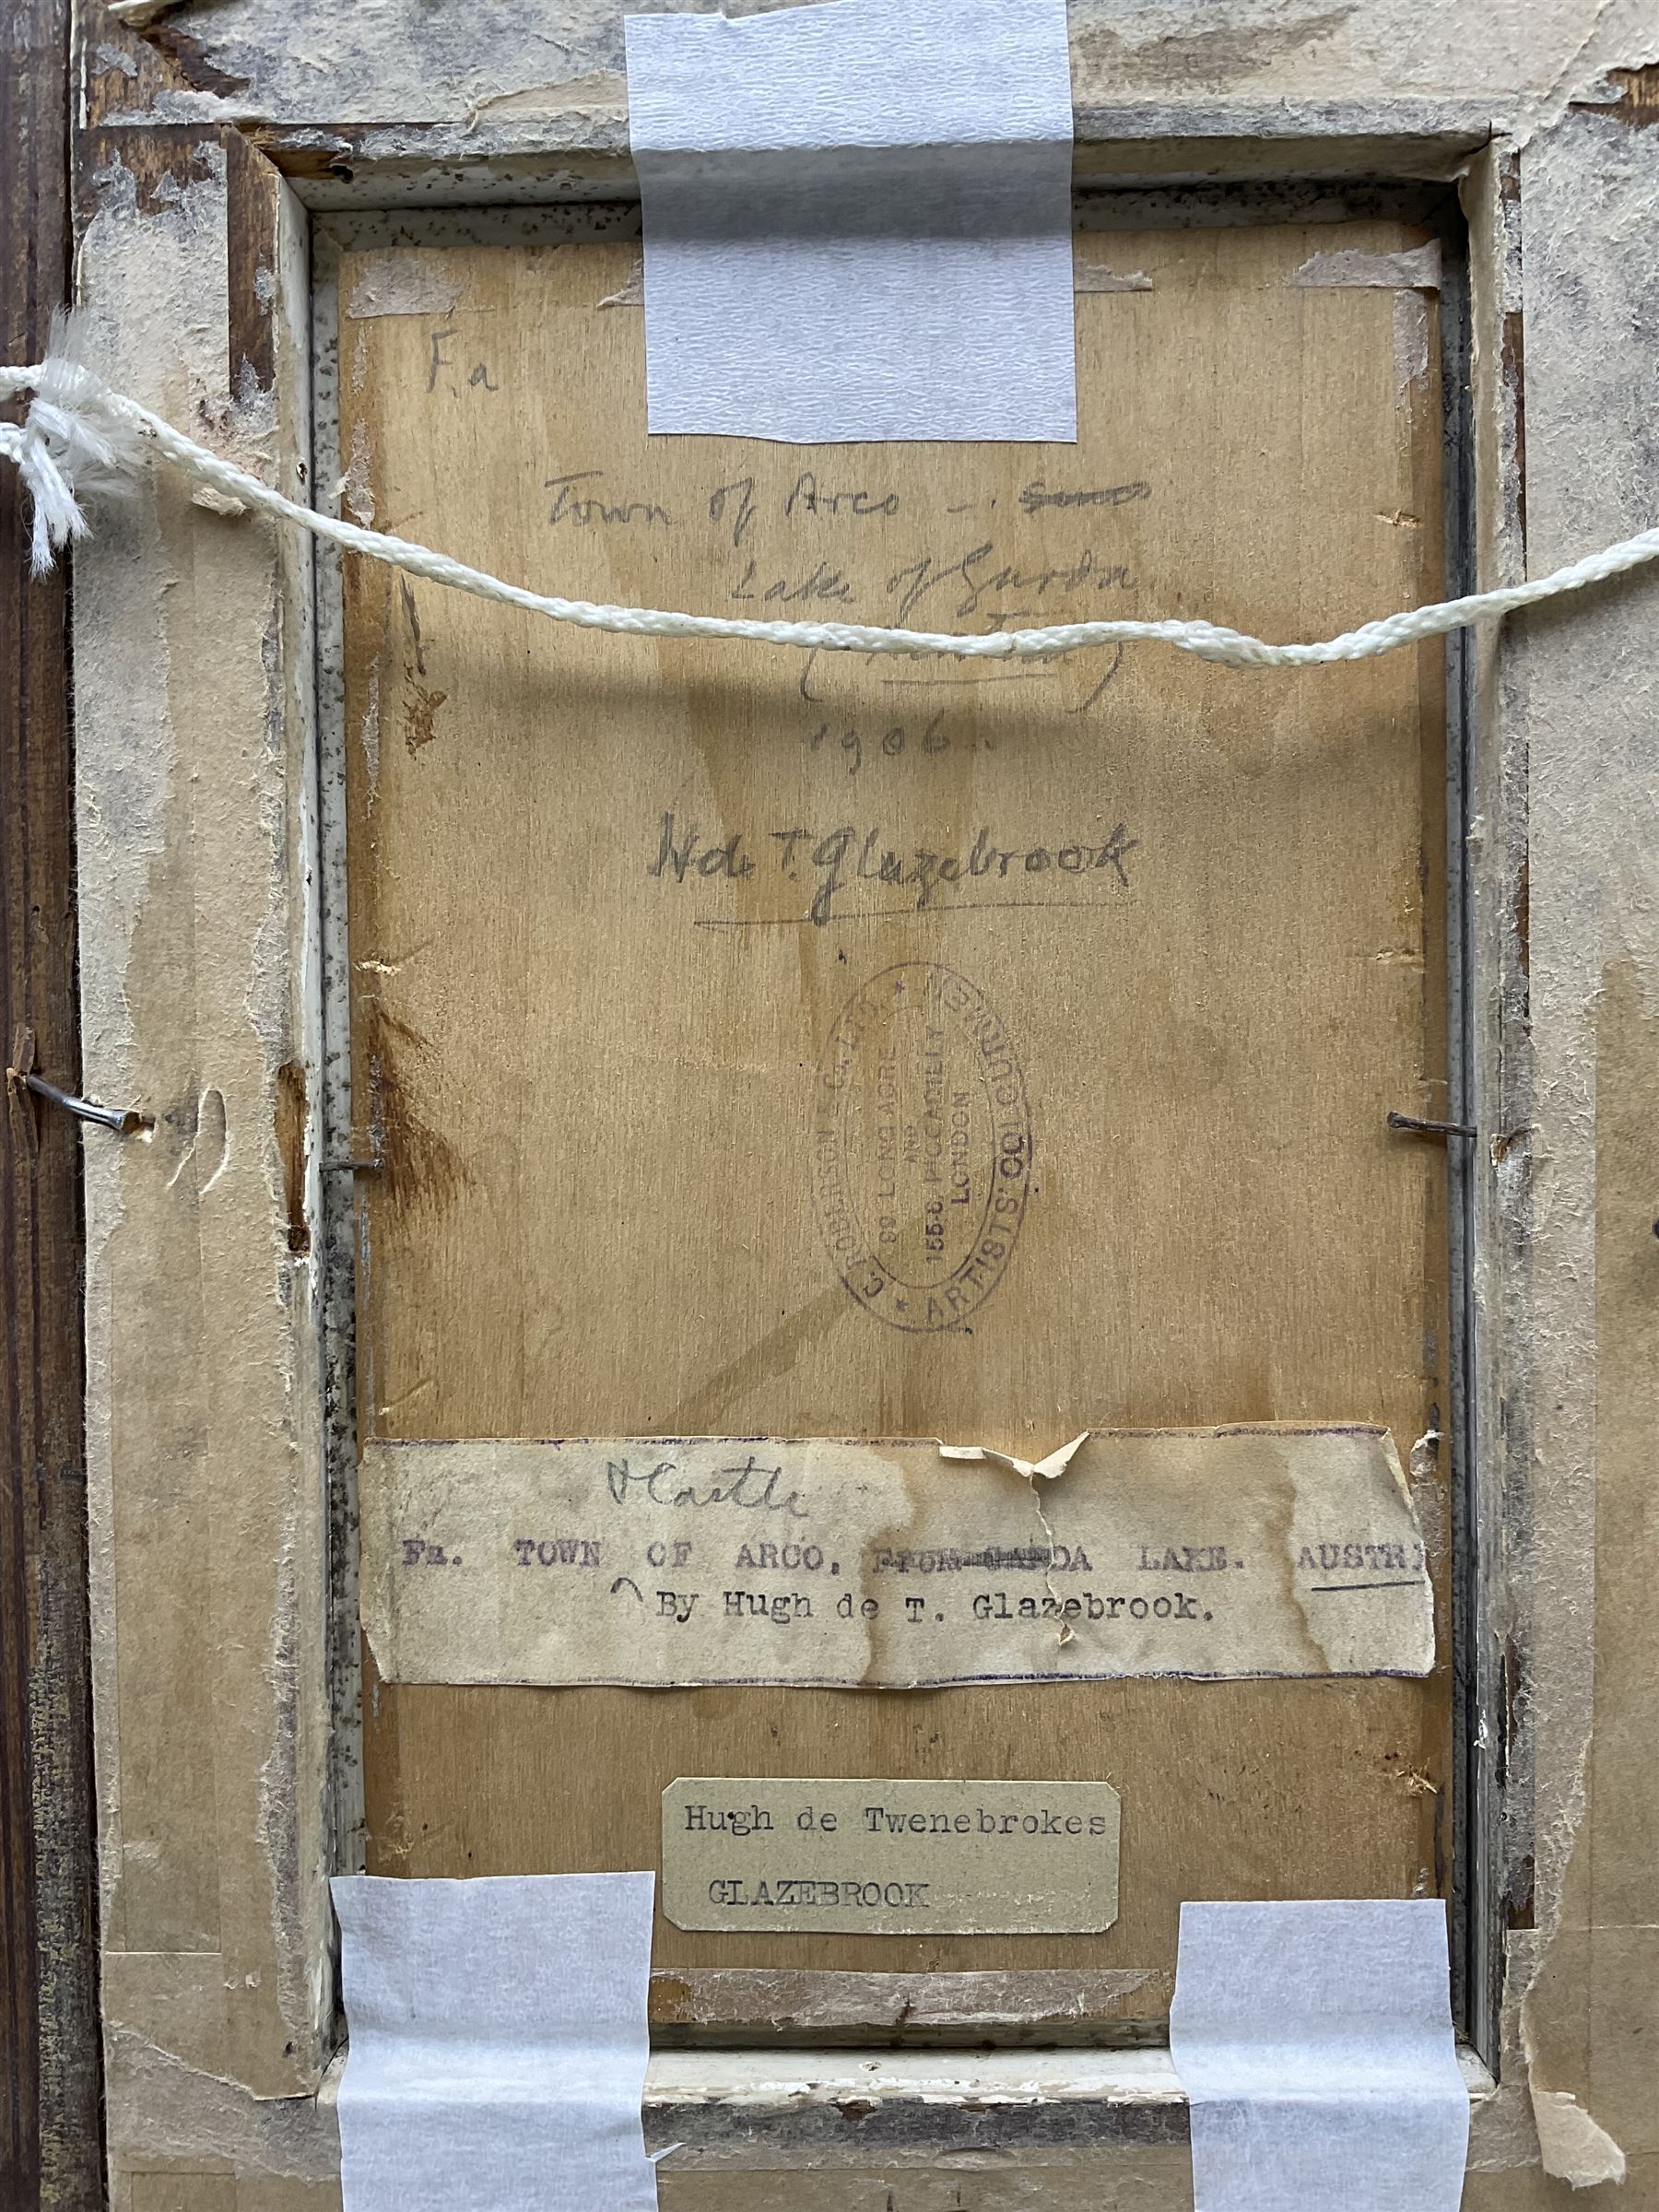 F.a
Town of Arco -.
Lake of Garda
1906.
H de T. Glazebrook
C. ROBERSON & Co. LTD. * ARTISTS' COLOURMEN *
99 LONG ACRE
AND
155-6, PICCADILLY
LONDON
& Castle
Fa. TOWN OF ARCO. FROM GARDA LAKE. AUSTRI
By Hugh de T. Glazebrook.
Hugh de Twenebrokes
GLAZEBROOK